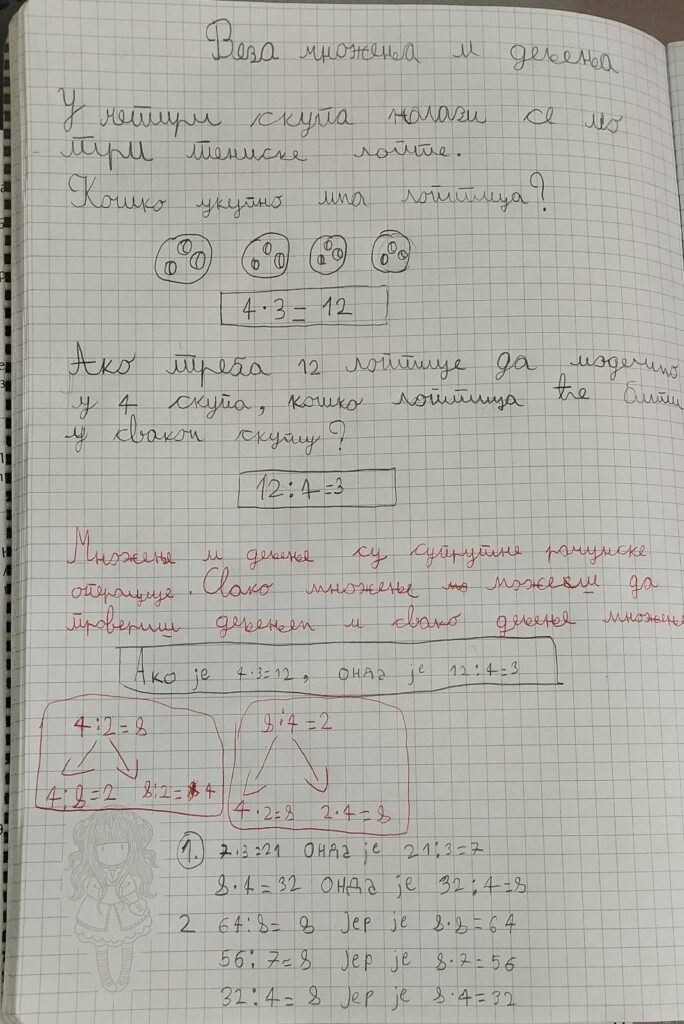 Веза множења и дељења
У четири скупа налази се по
три тениске лопте.
Колико укупно има лоптица?
4·3=12
Ако треба 12 лоптице да поделимо
у 4 скупа, колико лоптица ће бити
у сваком скупу?
12:4=3
Множење и дељење су супрутне рачунске
операције. Свако множење можеш да
провериш дељењем и свако дељење множење
Ако је 4·3=12, онда је 12:4=3
4:2=8
8:4=2
4:8=2 8:2=4
4·2=8 2·4=8
1. 7·3=21 онда је 21:3=7
8·4=32 онда је 32:4=8
2 64:8=8 јер је 8·8=64
56:7=8 јер је 8·7=56
32:4=8 јер је 8·4=32